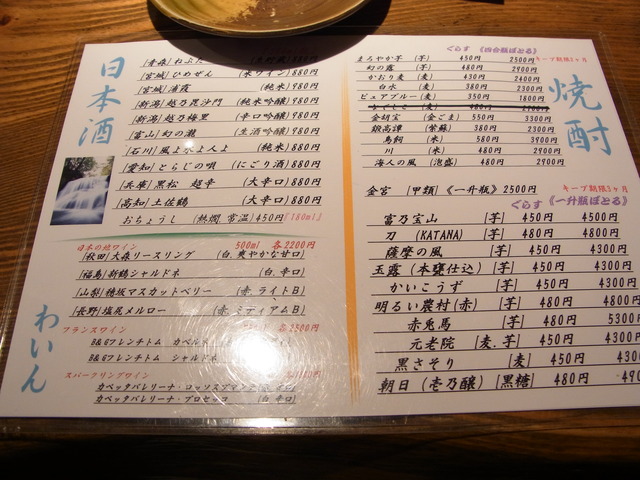 日本酒
|青森|ねぶた
|宮城|ひめぜん (米ワイン)880円
|宮城|浦霞 (純米)980円
|新潟|越乃毘沙門 (純米吟醸)980円
|新潟|越乃梅里 (辛口吟醸)980円
|富山|幻の瀧 (生酒吟醸)980円
|石川|風よ水よ人よ (純米)880円
|愛知|とらじの唄 (にごり酒)880円
|兵庫|黒松 超辛 (大辛口)880円
|高知|土佐鶴 (大辛口)880円
おちょうし (熱燗,常温)450円『180ml』
わいん
日本の地ワイン 500ml 各2200円
|秋田|大森リースリング (白,爽やかな甘口)
|福島|新鶴シャルドネ (白,辛口)
|山梨|穂坂マスカットベリー (赤,ライトB)
|長野|塩尻メルロー (赤,ミディアムB)
フランスワイン 各2500円
B&Gフレンチトム カベルネ
B&Gフレンチトム シャルドネ
スパークリングワイン
カペッタバレリーナ・ロッソスプマンテ
カペッタバレリーナ・プロセッコ (白,辛口)
焼酎
ぐらす 《四合瓶ぼとる》
キープ期限2ヶ月
まろやか芋 (芋) 450円 2500円
幻の露 (芋) 480円 2900円
かおり麦 (麦) 430円 2400円
白水 (麦) 380円 2300円
ピュアブルー(麦) 350円 1800円
金胡宝 (金ごま) 550円 3300円
鍛高譚 (紫蘇) 380円 2300円
鳥飼 (米) 580円 3900円
川 (米) 480円 2900円
海人の風 (泡盛) 480円 2900円
金宮 |甲類| 《一升瓶》2500円 キープ期限3ヶ月
ぐらす 《一升瓶ぼとる》
富乃宝山 |芋| 450円 4500円
刀 (KATANA) |芋| 480円 4800円
薩摩の風 |芋| 450円 4300円
玉露(本甕仕込) |芋| 450円 4300円
かいこうず |芋| 450円 4300円
明るい農村(赤) |芋| 480円 4800円
赤兎馬 |芋| 480円 5300円
元老院 |麦,芋| 450円 4300
黒さそり |麦| 450円 4300
朝日 (壱乃醸) |黒糖| 480円